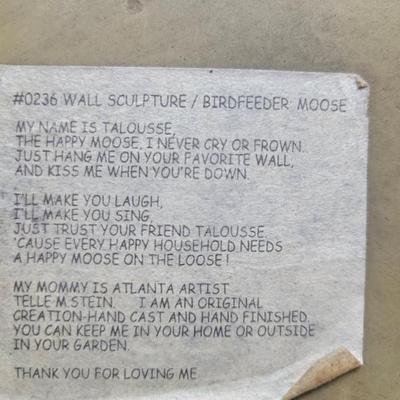 #0236 WALL SCULPTURE / BIRDFEEDER MOOSE
MY NAME IS TALOUSSE,
THE HAPPY MOOSE, I NEVER CRY OR FROWN.
JUST HANG ME ON YOUR FAVORITE WALL,
AND KISS ME WHEN YOU'RE DOWN.
I'LL MAKE YOU LAUGH,
I'LL MAKE YOU SING,
JUST TRUST YOUR FRIEND TALOUSSE.
'CAUSE EVERY HAPPY HOUSEHOLD NEEDS
A HAPPY MOOSE ON THE LOOSE !
MY MOMMY IS ATLANTA ARTIST
TELLE M.STEIN. I AM AN ORIGINAL
CREATION-HAND CAST AND HAND FINISHED.
YOU CAN KEEP ME IN YOUR HOME OR OUTSIDE
IN YOUR GARDEN.
THANK YOU FOR LOVING ME